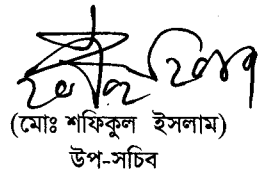 (মোঃ শফিকুল ইসলাম)
উপ-সচিব